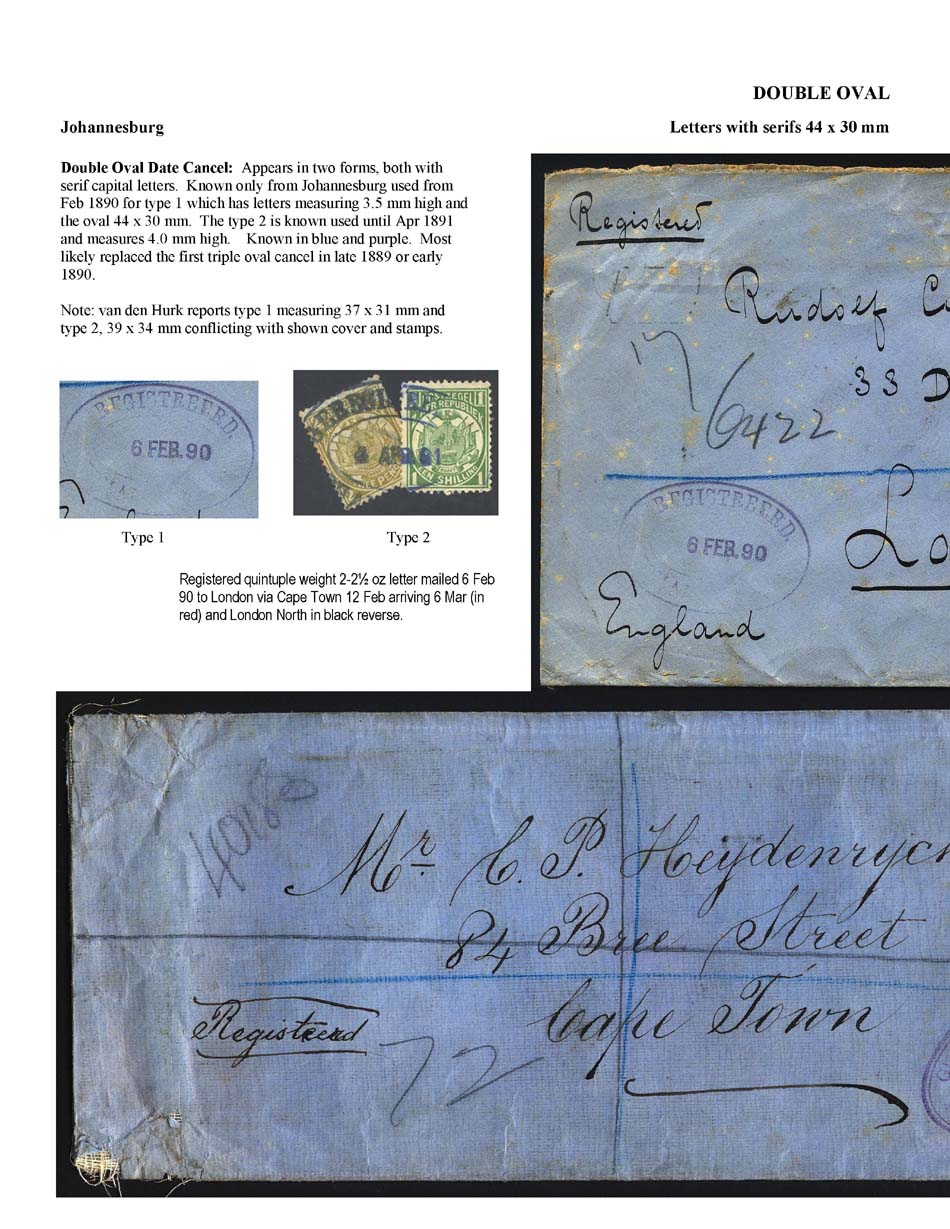 DOUBLE OVAL
Johannesburg
Letters with serifs 44 x 30 mm
Double Oval Date Cancel: Appears in two forms, both with
serif capital letters. Known only from Johannesburg used from
Feb 1890 for type 1 which has letters measuring 3.5 mm high and
the oval 44 x 30 mm. The type 2 is known used until Apr 1891
and measures 4.0 mm high. Known in blue and purple. Most
likely replaced the first triple oval cancel in late 1889 or early
1890.
Note: van den Hurk reports type 1 measuring 37 x 31 mm and
type 2, 39 x 34 mm conflicting with shown cover and stamps.
REGISTREERD.
6 FEB. 90
POSTZEGEL 1
EEN SHILLING
Type 1
Type 2
Registered quintuple weight 2-2½ oz letter mailed 6 Feb
90 to London via Cape Town 12 Feb arriving 6 Mar (in
red) and London North in black reverse.
Registered
Rudolf
33
6422
REGISTREERD.
6 FEB. 90
Lo
England
Mr. C. P. Heydenrych
84 Bree Street
Cape Town
Registeerd
72